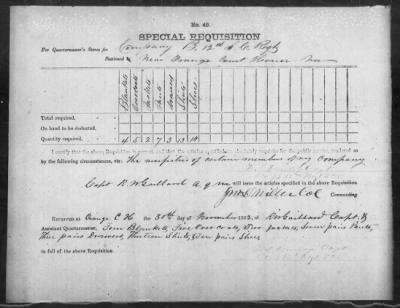 No. 40.
SPECIAL REQUISITION
For Quartermaster's Stores for Company B, 12th S. C. Regt
Stationed at Near Orange Court House Va
Blankets Overcoats Jackets Pants Drawers Shirts Shoes
Total required,
On hand to be deducted,
Quantity required, 4 5 2 7 3 13 10
I certify that the above Requisition is correct, and that the articles specified are absolutely requisite for the public service, rendered so
by the following circumstances, viz: The necessities of certain members of my Company
Capt R W Gaillard A Q M will issue the articles specified in the above Requisition
Commanding
Received at Orange C H the 30th day of November 1863, of R W Gaillard Capt &
Assistant Quartermaster, Four Blankets, Five Overcoats, Two jackets, Seven pairs Pants,
Three pairs Drawers, Thirteen Shirts, Ten pairs Shoes
in full of the above Requisition.